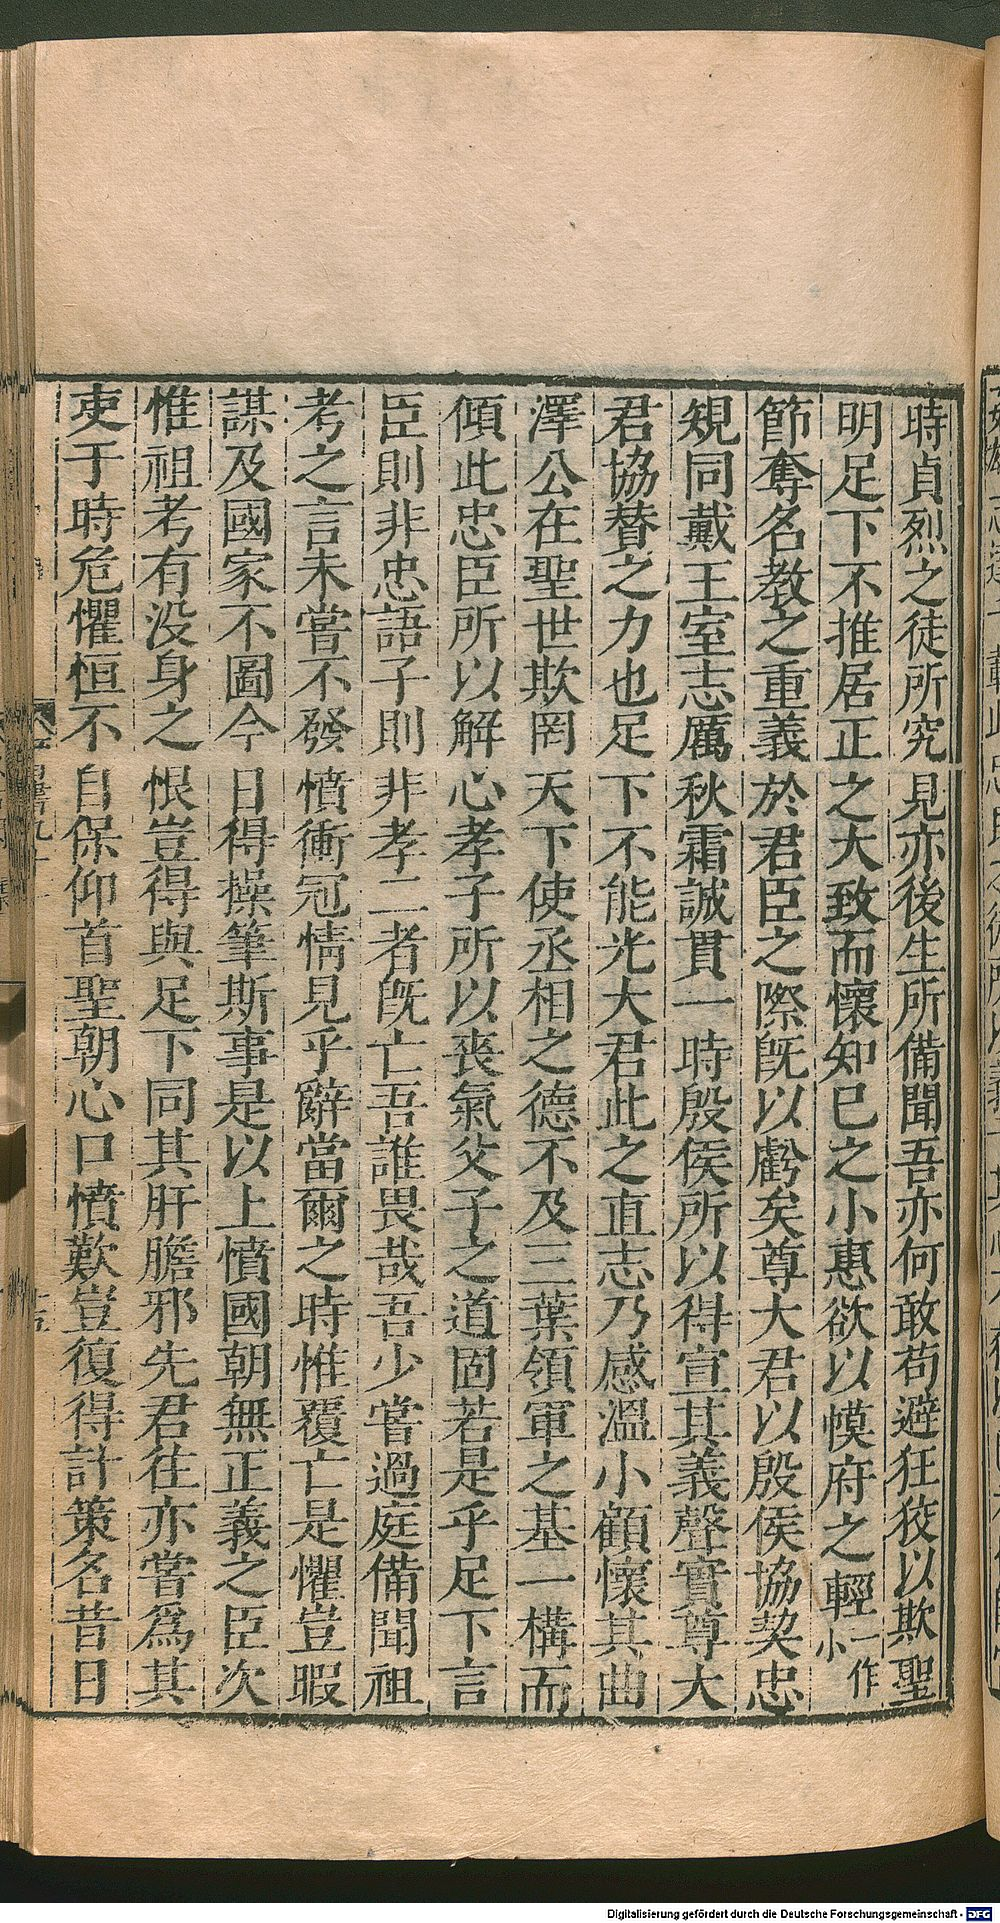 時貞烈之徒所究見亦後生所備聞吾亦何敢苟避狂狡以欺聖
明足下不推居正之大致而懷知己之小惠欲以幙府之輕一作小
節奪名教之重義於君臣之際既以虧矣尊大君以殷侯協契忠
規同戴王室志厲秋霜誠貫一時殷侯所以得宣其義聲實尊大
君協贊之力也足下不能光大君此之直志乃感溫小顧懷其曲
澤公在聖世欺罔天下使丞相之德不及三葉領軍之基一構而
傾此忠臣所以解心孝子所以喪氣父子之道固若是乎足下言
臣則非忠語子則非孝二者既亡吾誰畏哉吾少嘗過庭備聞祖
考之言未嘗不發憤衝冠情見乎辭當爾之時惟覆亡是懼豈暇
謀及國家不圖今日得操筆斯事是以上憤國朝無正義之臣次
惟祖考有没身之恨豈得與足下同其肝膽邪先君往亦嘗爲其
吏于時危懼恒不自保仰首聖朝心口憤歎豈復得計策名昔日
Digitalisierung gefördert durch die Deutsche Forschungsgemeinschaft - DFG